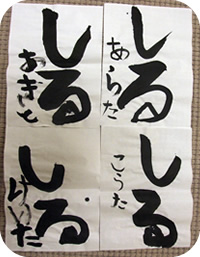 しる
あらた
しる
あきと
しる
こうた
しる
けいた